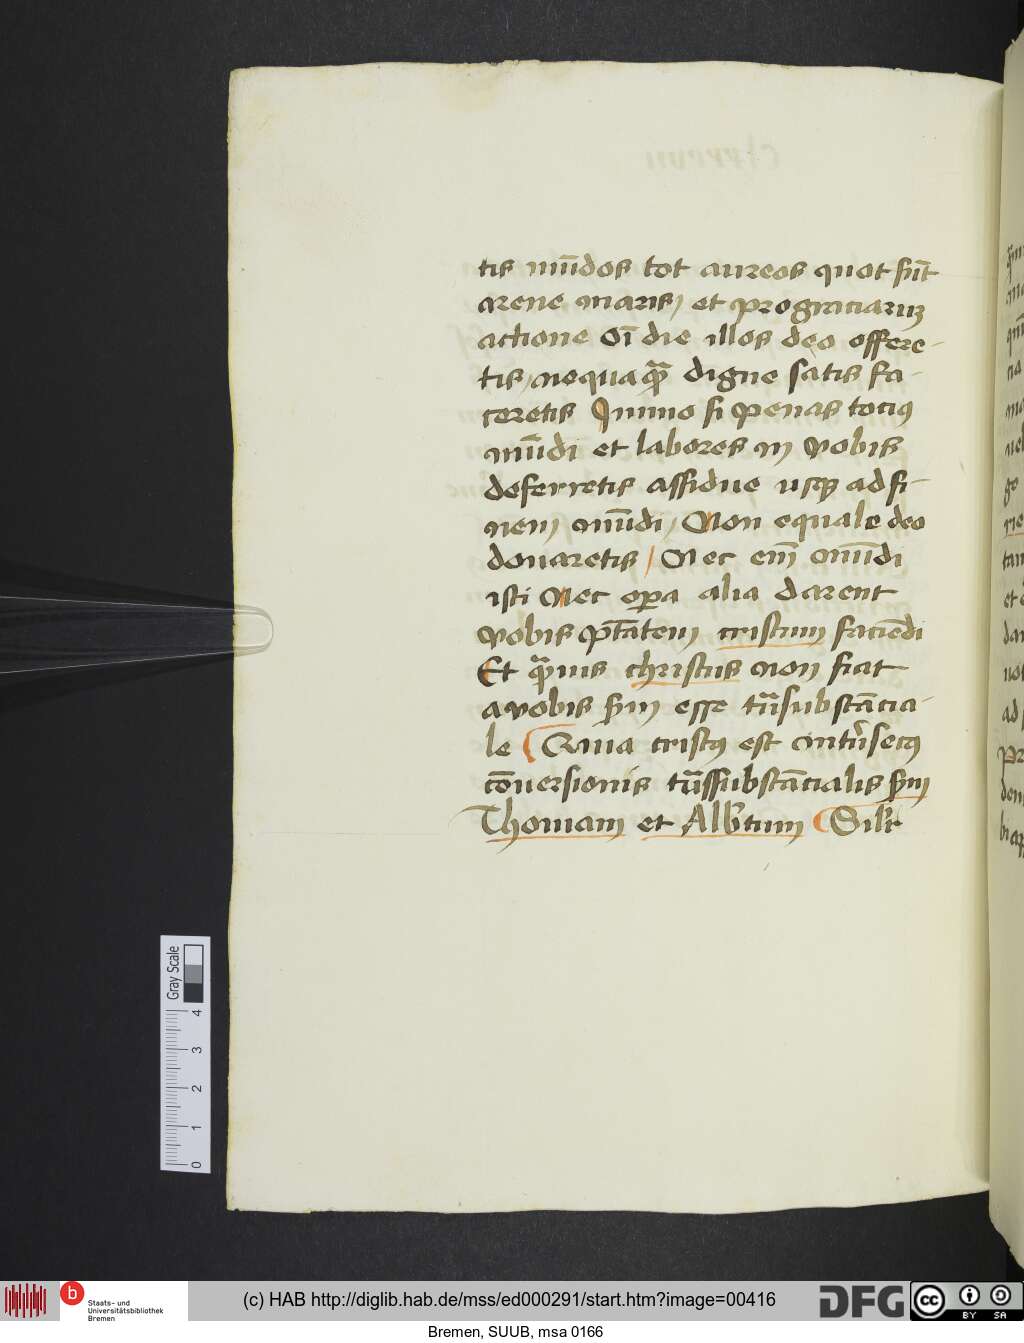 tis mūdos tot aureos quot sūt
arene maris, et prograciarum
actione oī die illos deo offere-
tis, nequaqꝫ digne satis fa-
ceretis Immo si penas tocius
mūdi et labores in vobis
deferretis assidue usqꝫ ad fi-
nem mūdi, Non equale deo
donaretis / Nec enī mūdi
isti Nec opa alia darent
vobis ptātem cristum faciēdi
Et quis christus non fiat
a vobis sm esse trāsubstācia-
le Qina cristus est
cōversionis trāssubstācialis sm
Thomam et Albtum Silr
Gray Scale
4
3
2
1
0
b
Staats- und
Universitätsbibliothek
Bremen
(c) HAB http://diglib.hab.de/mss/ed000291/start.htm?image=00416
DFG
cc
BY SA
Bremen, SUUB, msa 0166